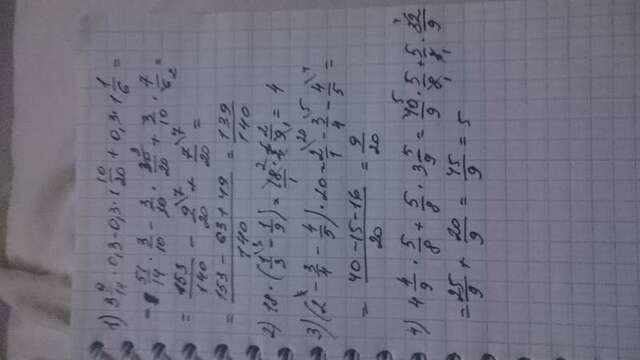 1) 3 9/14 · 0,3 - 0,3 · 1 10/20 + 0,3 · 1 1/6 =
= 51/14 · 3/10 - 3/10 · 30/20 + 3/10 · 7/6 =
= 153/140 - 9/20 + 7/20 =
= 153 - 63 + 49/140 = 139/140
2) 18 · (1/3 - 1/9) = 18/1 · 2/9 = 4
3) (2 - 3/4 - 4/5) · 20 = 2/1 - 3/4 - 4/5 =
= 40 - 15 - 16/20 = 9/20
4) 4 4/9 · 5/8 + 5/8 · 3 5/9 = 40/9 · 5/8 + 5/8 · 32/9
= 25/9 + 20/9 = 45/9 = 5